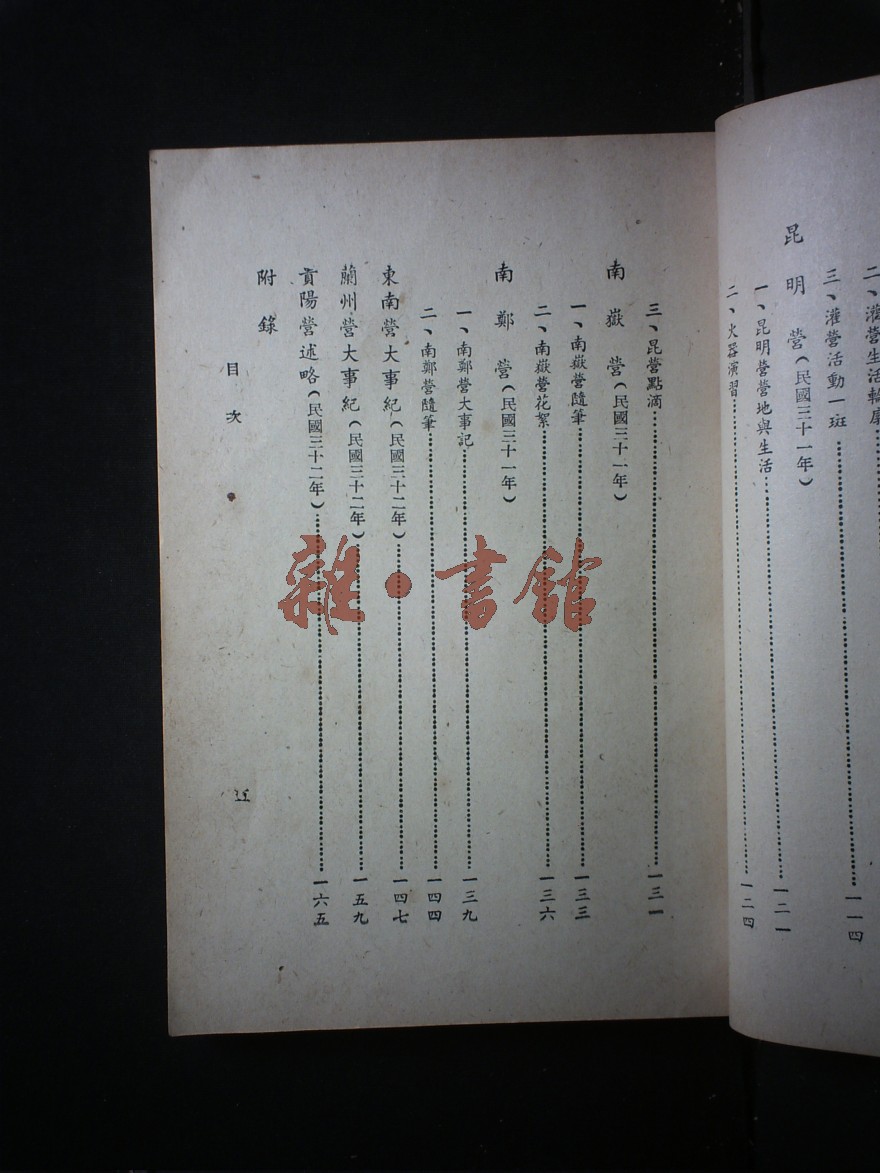 二、灌營生活輪廓
三、灌營活動一斑……一一四
昆明營(民國三十一年)
一、昆明營營地與生活……一二一
二、火器演習……一二四
三、昆營點滴……一三一
南嶽營(民國三十一年)
一、南嶽營隨筆……一三三
二、南嶽營花絮……一三六
南鄭營(民國三十一年)
一、南鄭營大事記……一三九
二、南鄭營隨筆……一四四
東南營大事紀(民國三十二年)……一四七
蘭州營大事紀(民國三十二年)……一五九
貢陽營述略(民國三十二年)……一六五
附錄
目次
五
雜·書館